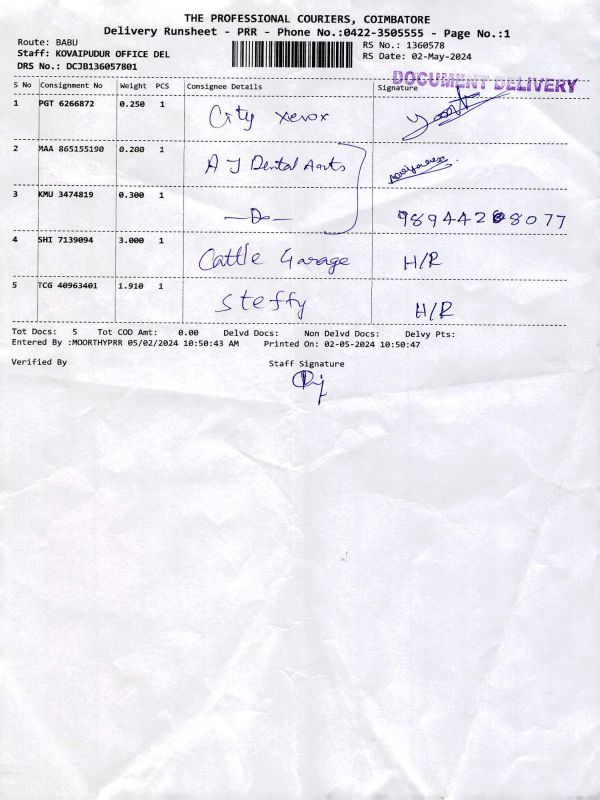 THE PROFESSIONAL COURIERS, COIMBATORE
Delivery Runsheet - PRR - Phone No.:0422-3505555 - Page No.:1
Route: BABU
Staff: KOVAIPUDUR OFFICE DEL
DRS No.: DCJB136057801
RS No.: 1360578
RS Date: 02-May-2024
DOCUMENT DELIVERY
S No Consignment No Weight PCS Consignee Details Signature
1 PGT 6266872 0.250 1 City xerox
2 MAA 865155190 0.200 1 A J Dental Aarts
3 KMU 3474819 0.300 1 —Do—
4 SHI 7139094 3.000 1 Cattle Garage H/R
5 TCG 40963401 1.910 1 Steffy H/R
Tot Docs: 5 Tot COD Amt: 0.00 Delvd Docs: Non Delvd Docs: Delvy Pts:
Entered By :MOORTHYPRR 05/02/2024 10:50:43 AM Printed On: 02-05-2024 10:50:47
Verified By Staff Signature